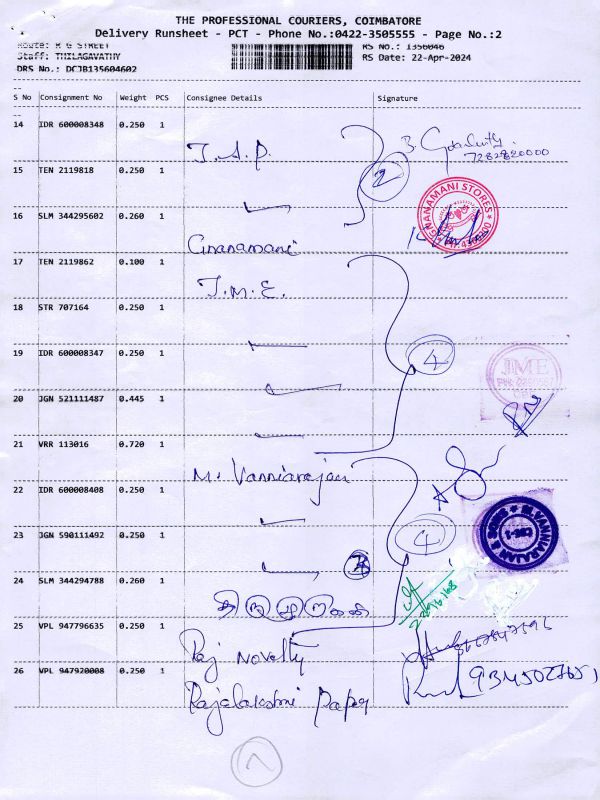 THE PROFESSIONAL COURIERS, COIMBATORE
Delivery Runsheet - PCT - Phone No.:0422-3505555 - Page No.:2
Route: R G STREET RS No.: 1356046
Staff: THILAGAVATHY RS Date: 22-Apr-2024
DRS No.: DCJB135604602
S No Consignment No Weight PCS Consignee Details Signature
14 IDR 600008348 0.250 1
J.A.P. 7282820000
15 TEN 2119818 0.250 1
2
16 SLM 344295602 0.260 1
Gnanamani GNANAMANI STORES
17 TEN 2119862 0.100 1
J.M.E.
18 STR 707164 0.250 1
19 IDR 600008347 0.250 1
4 JME
20 JGN 521111487 0.445 1
21 VRR 113016 0.720 1
M. Vanniarajan
22 IDR 600008408 0.250 1
23 JGN 590111492 0.250 1
4 M.VANNIARAJAN & SONS
24 SLM 344294788 0.260 1
25 VPL 947796635 0.250 1
Raj Novelty
26 VPL 947920008 0.250 1
Rajalakshmi Paper